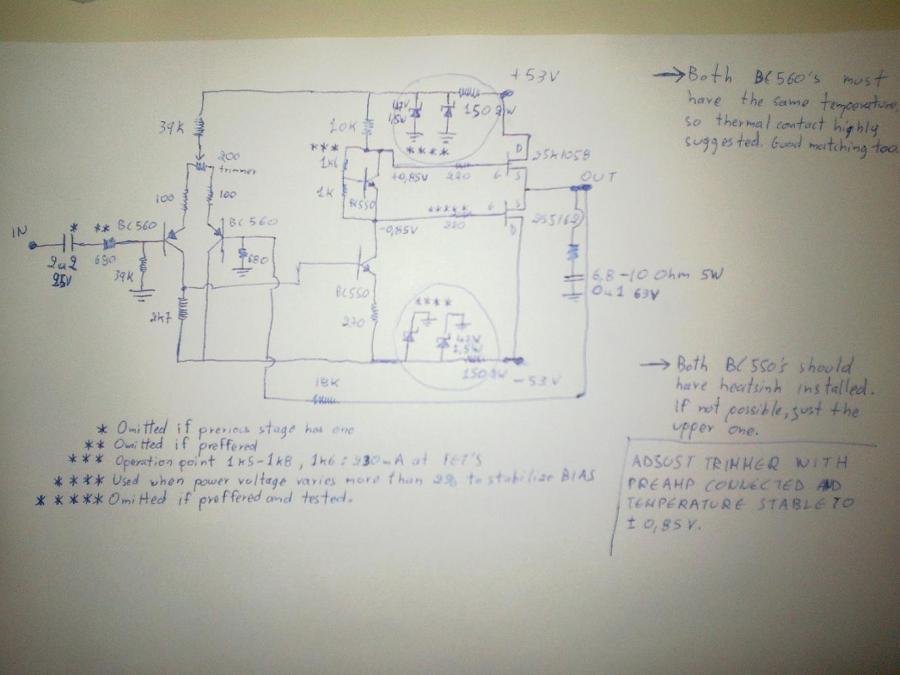 +53V
→ Both BC560's must
have the same temperature,
so thermal contact highly
suggested. Good matching too.
39K
10K
150 2W
****
200
trimmer
***
1k6
1K
+0,85V
220
G
D
S
2SK1058
OUT
100
100
BC550
*****
220
G
S
D
-0,85V
IN
*
2u2
25V
**
680
BC560
BC560
39K
680
BC550
6,8-10 Ohm 5W
0u1 63V
2k7
270
****
150 2W
-53V
18K
→ Both BC550's should
have heatsink installed.
If not possible, just the
upper one.
* Omitted if previous stage has one
** Omitted if preffered
*** Operation point 1k5-1k8, 1k6: mA at FET'S
**** Used when power voltage varies more than to stabilize BIAS
***** Omitted if preffered and tested.
ADJUST TRIMMER WITH
PREAMP CONNECTED AND
TEMPERATURE STABLE TO
± 0,85V.